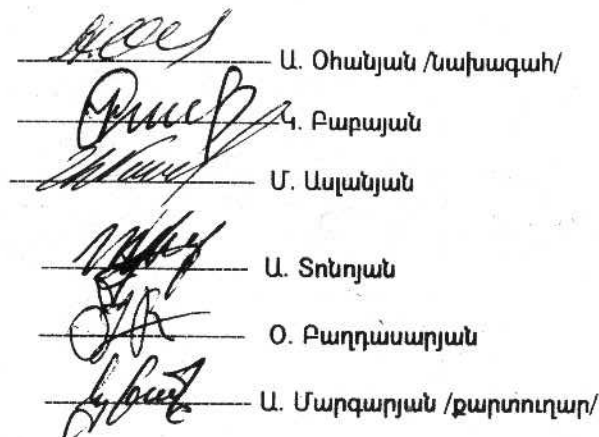 Ա. Օհանյան /նախագահ/
Կ. Բաբայան
Մ. Ասլանյան
Ա. Տոնոյան
Օ. Բաղդասարյան
Ա. Մարգարյան /քարտուղար/